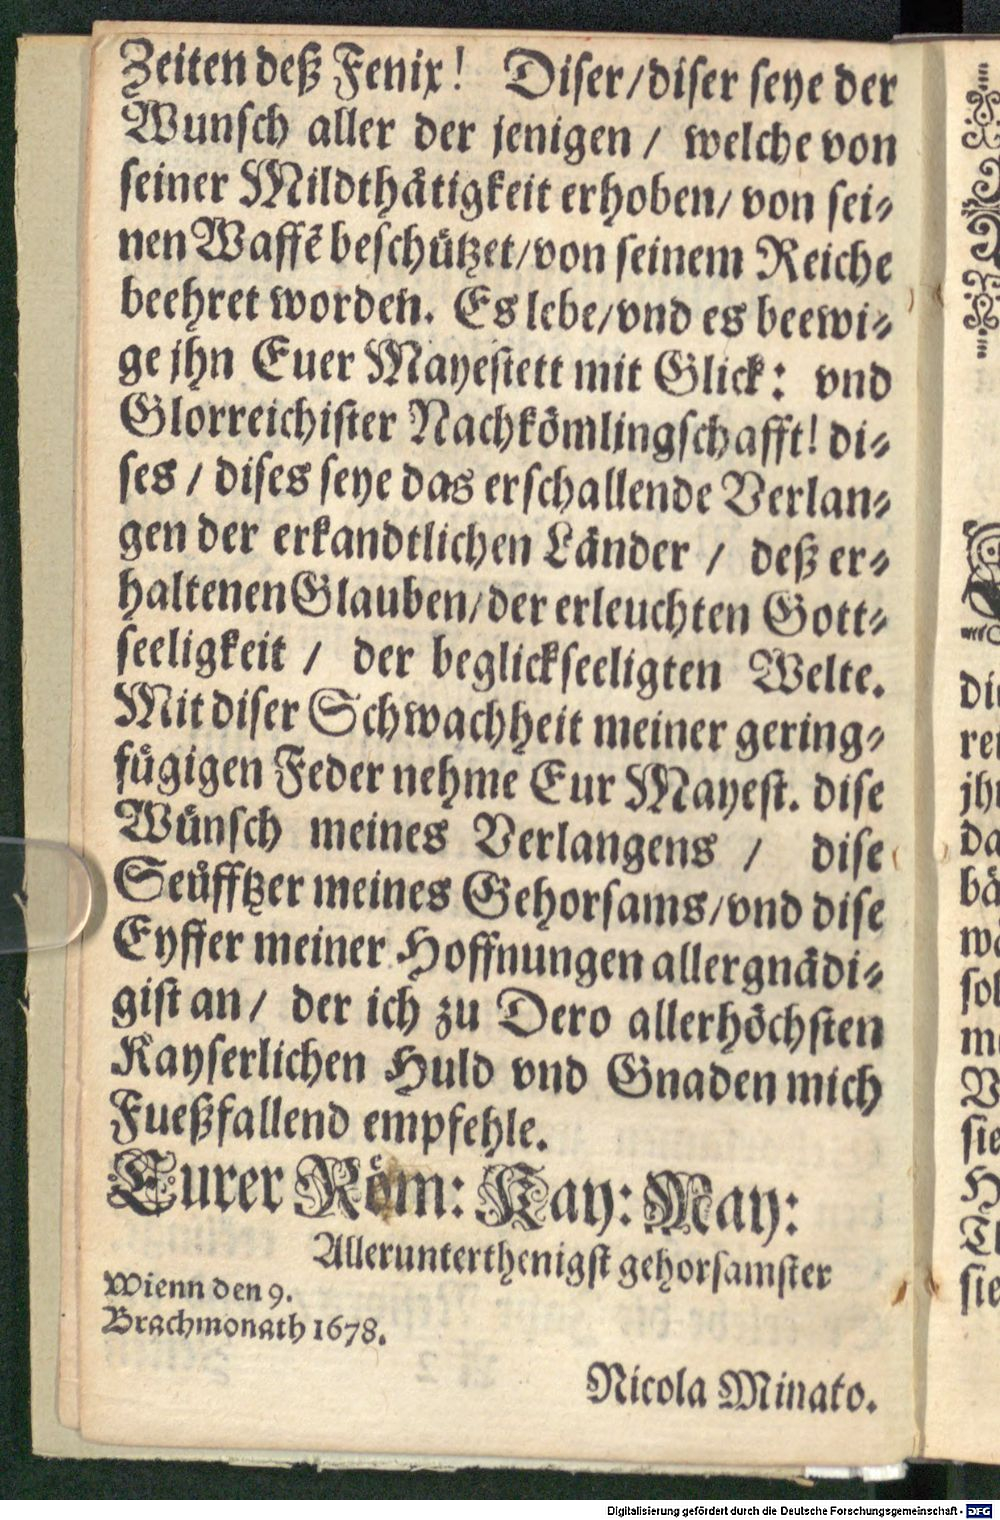 Zeiten deß Fenix! Diser/diser seye der
Wunsch aller der jenigen / welche von
seiner Mildthätigkeit erhoben/ von sei-
nen Waffē beschützet/von seinem Reiche
beehret worden. Es lebe/vnd es beewi-
ge jhn Euer Mayestett mit Glick: vnd
Glorreichister Nachkömlingschafft! di-
ses / dises seye das erschallende Verlan-
gen der erkandtlichen Länder / deß er-
haltenen Glauben/der erleuchten Gott-
seeligkeit / der beglickseeligten Welte.
Mit diser Schwachheit meiner gering-
fügigen Feder nehme Eur Mayest. dise
Wünsch meines Verlangens / dise
Seüfftzer meines Gehorsams/vnd dise
Eyffer meiner Hoffnungen allergnädi-
gist an/ der ich zu Dero allerhöchsten
Kayserlichen Huld vnd Gnaden mich
Fueßfallend empfehle.
Eurer Röm: Kay: May:
Allerunterthenigst gehorsamster
Wienn den 9.
Brachmonath 1678.
Nicola Minato.
die
rei
jhr
da
bä
wä
sol
me
V
sie
H
sie
Digitalisierung gefördert durch die Deutsche Forschungsgemeinschaft - DFG